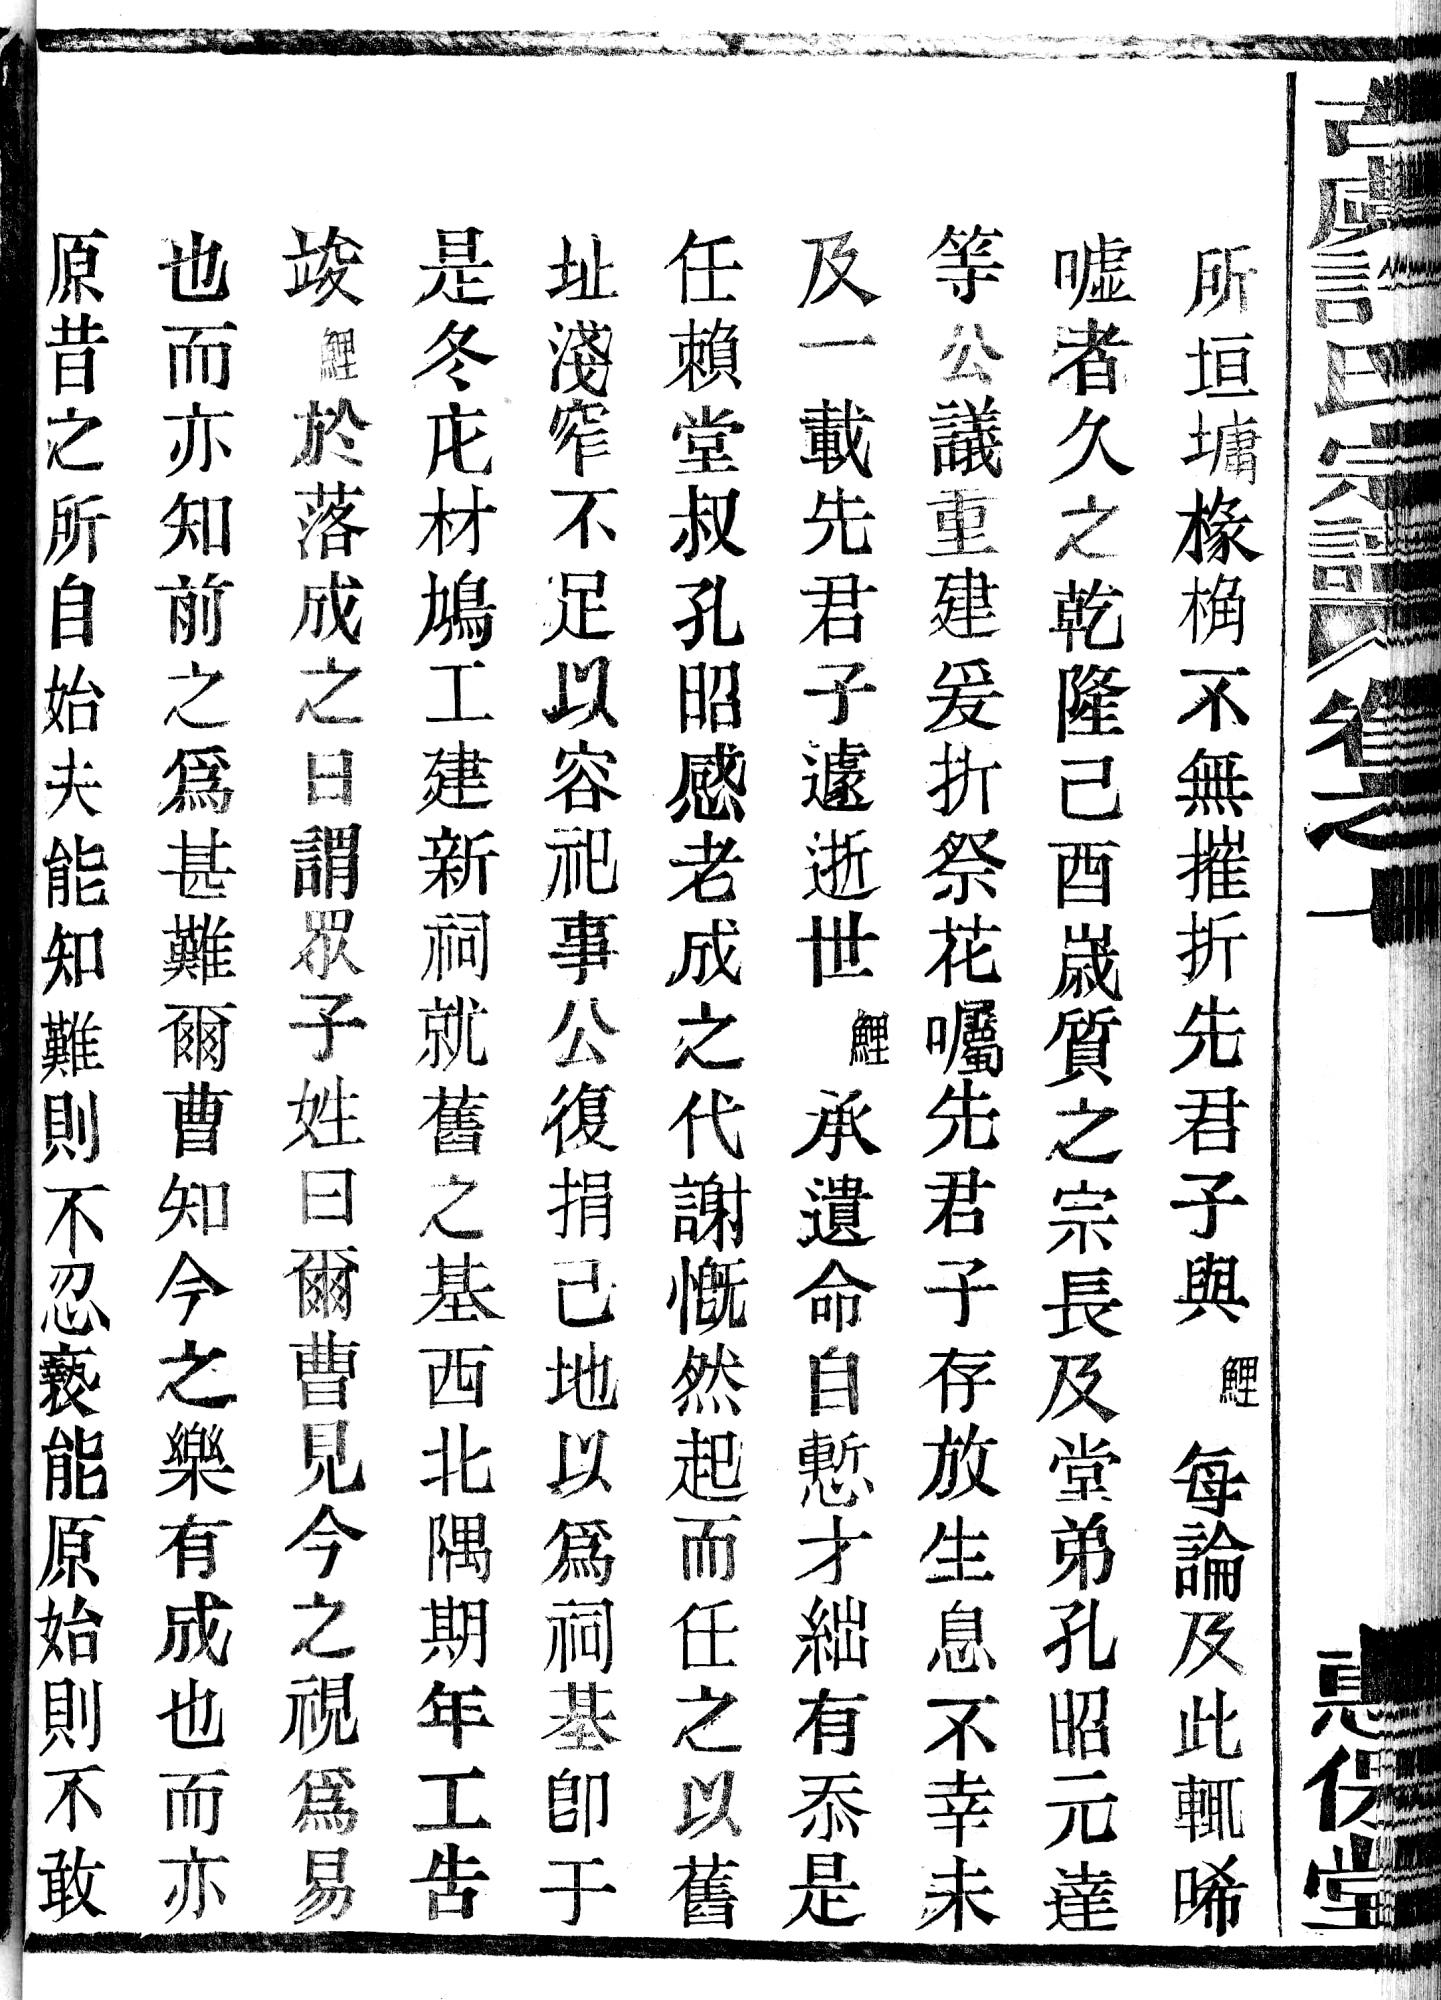 古虞許氏宗譜 卷之一 惠保堂
所垣墉椽桷不無摧折先君子與鯉每論及此輒唏
噓者久之乾隆己酉歲質之宗長及堂弟孔昭元達
等公議重建爰折祭花囑先君子存放生息不幸未
及一載先君子遽逝世鯉承遺命自慙才絀有忝是
任賴堂叔孔昭感老成之代謝慨然起而任之以舊
址淺窄不足以容祀事公復捐己地以爲祠基卽于
是冬庀材鳩工建新祠就舊之基西北隅期年工告
竣鯉於落成之日謂眾子姓曰爾曹見今之視爲易
也而亦知前之爲甚難爾曹知今之樂有成也而亦
原昔之所自始夫能知難則不忍褻能原始則不敢